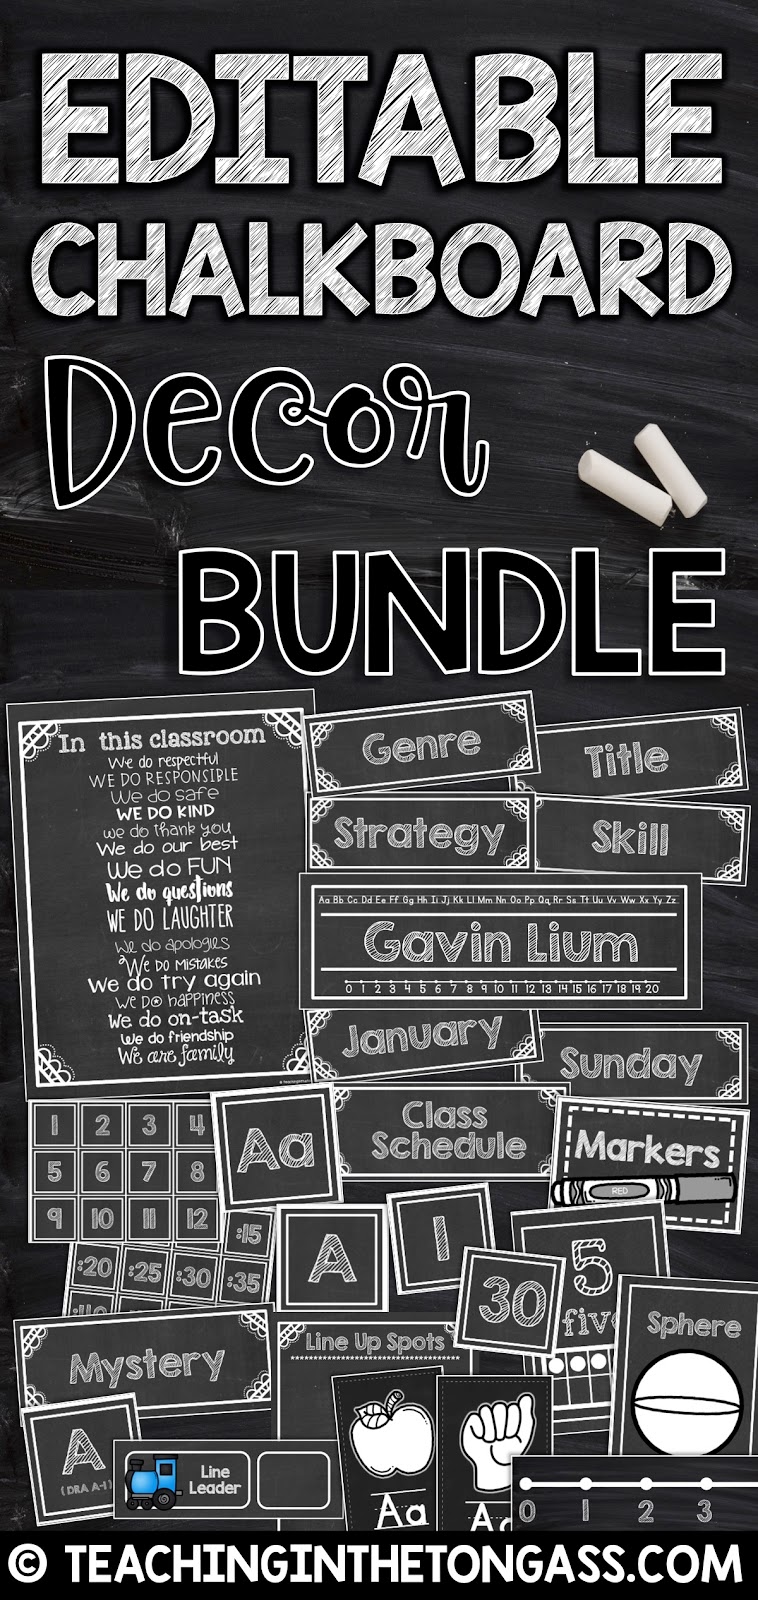 EDITABLE
CHALKBOARD
Decor
BUNDLE
In this classroom
We do respectful
WE DO RESPONSIBLE
We do safe
WE DO KIND
we do thank you
We do our best
We do FUN
We do questions
WE DO LAUGHTER
We do apologies
We do mistakes
We do try again
We do happiness
We do on-task
We do friendship
We are family
Genre
Title
Strategy
Skill
Aa Bb Cc Dd Ee Ff Gg Hh Ii Jj Kk Ll Mm Nn Oo Pp Qq Rr Ss Tt Uu Vv Ww Xx Yy Zz
Gavin Lium
0 1 2 3 4 5 6 7 8 9 10 11 12 13 14 15 16 17 18 19 20
January
Sunday
Class
Schedule
Markers
RED
1 2 3 4
5 6 7 8
9 10 11 12
Aa
:15
:20 :25 :30 :35
A
1
30
5
five
Sphere
Mystery
Line Up Spots
A
(DRA A-1)
Line
Leader
Aa
0 1 2 3
© TEACHINGINTHETONGASS.COM